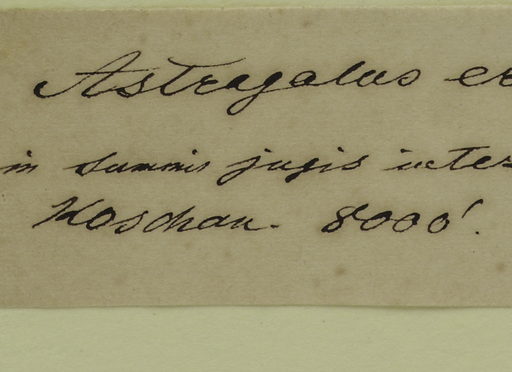 Astragalus er
in summis jugis inter
Koschan. 8000'.